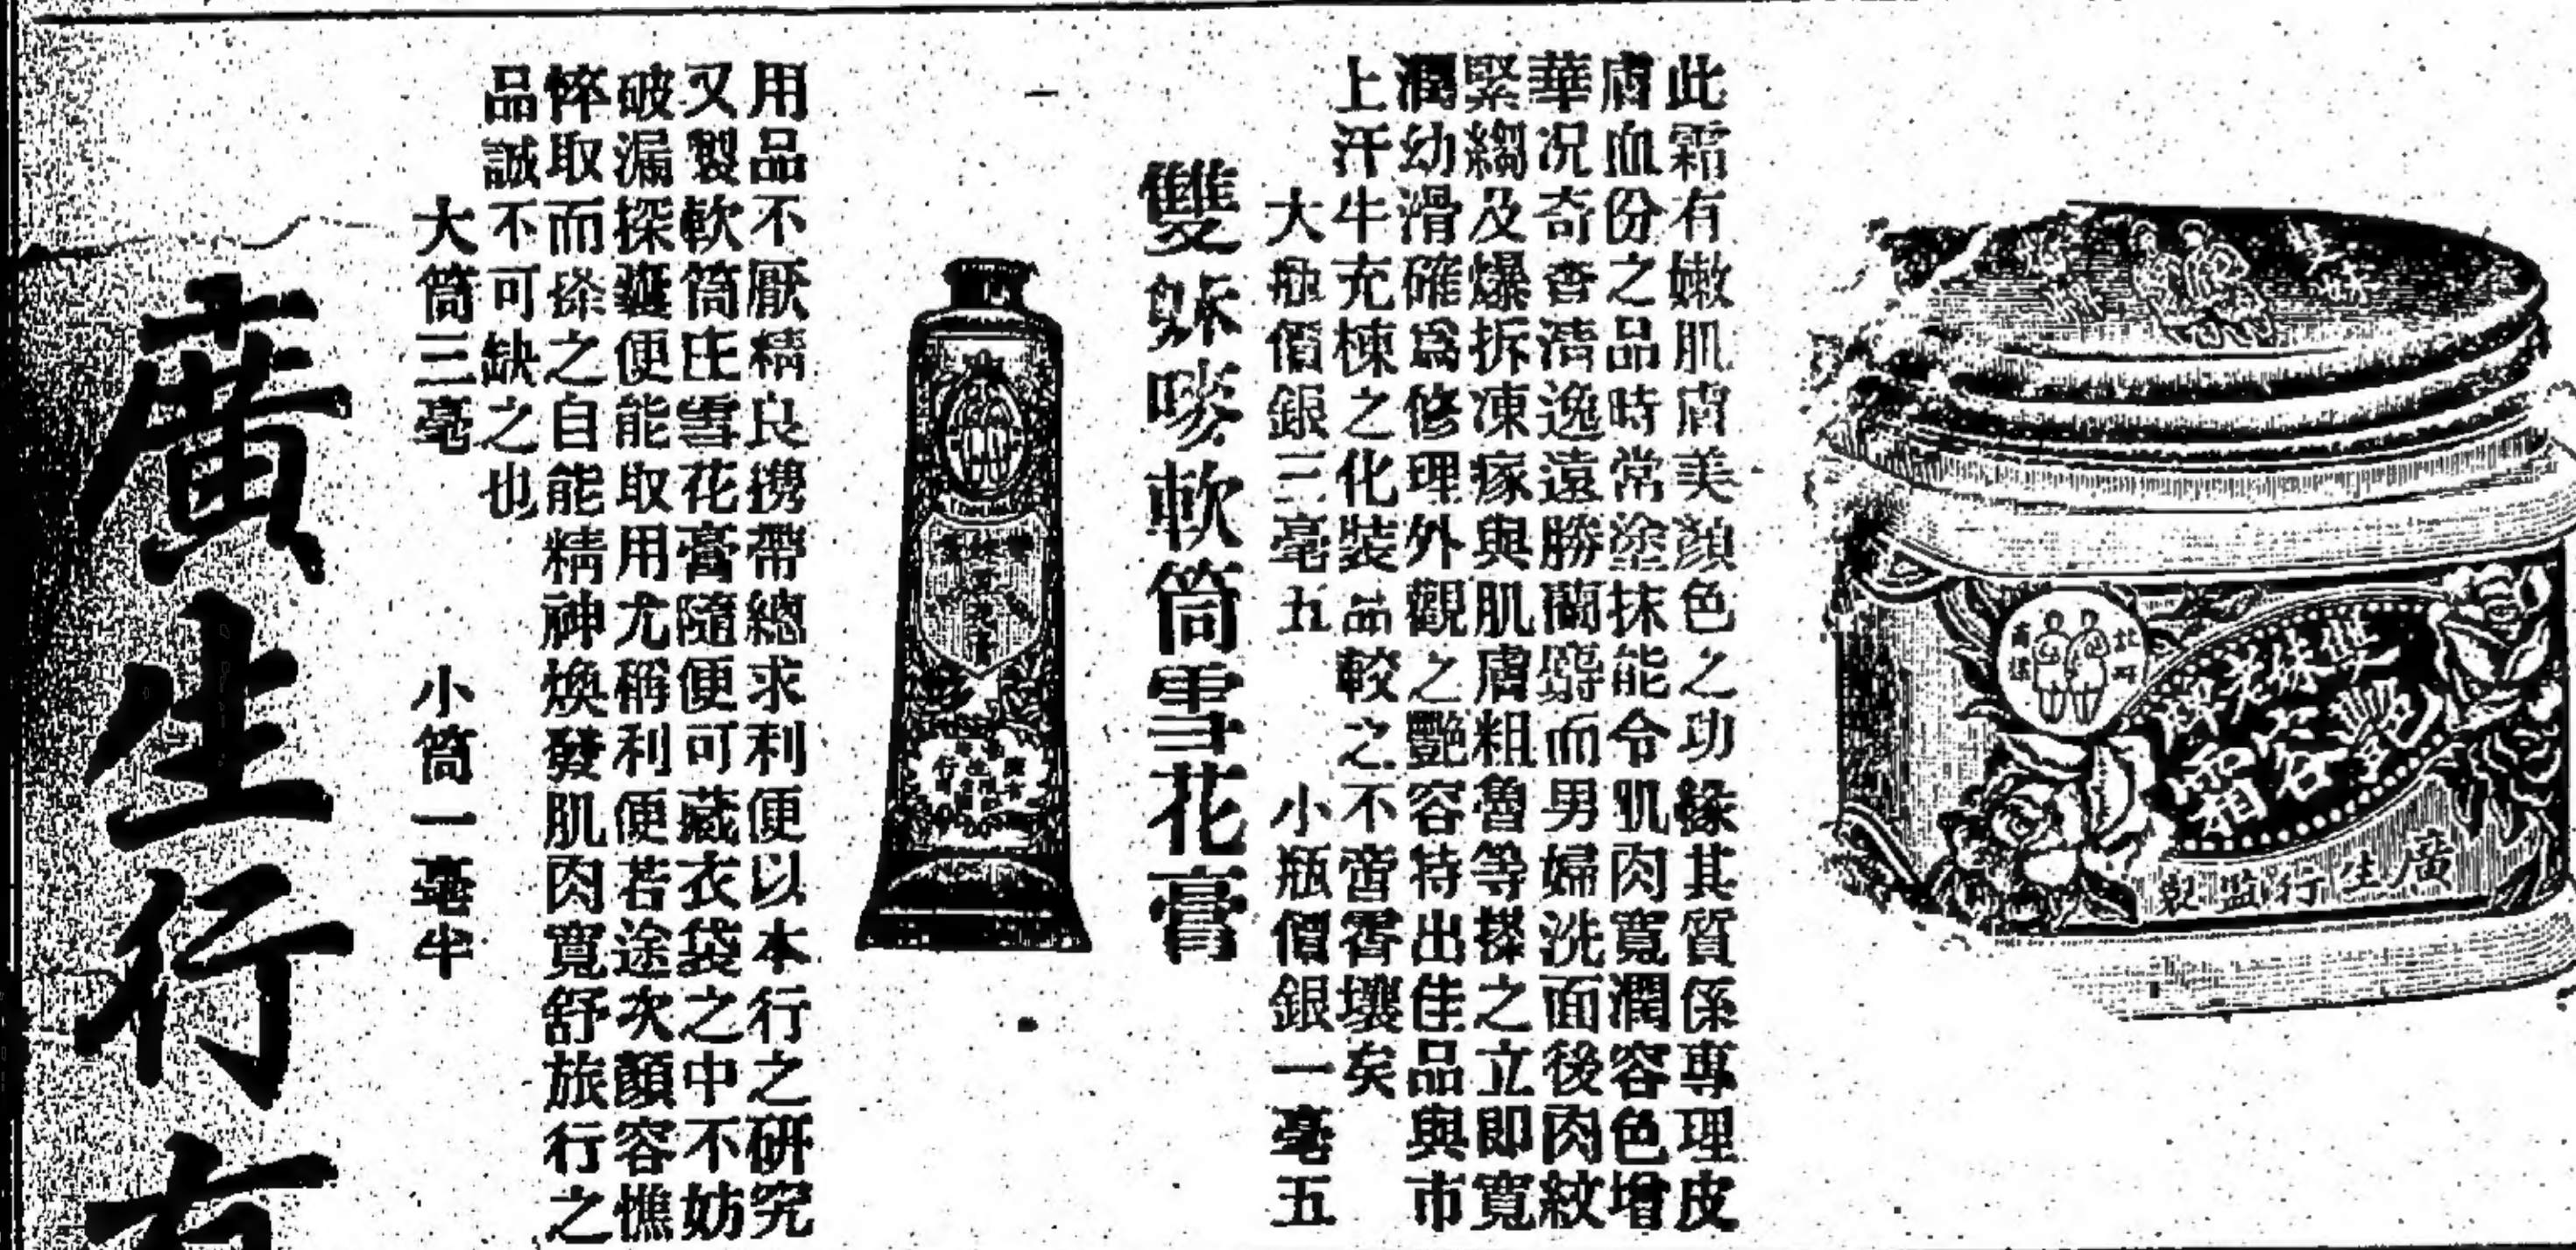 雙妹老牌
艷容霜
廣生行監製
此霜有嫩肌膚美顏色之功緣其質係專理皮
膚血份之品時常塗抹能令肌肉寬潤容色增
華况奇香清逸遠勝蘭麝而男婦洗面後肉紋
緊縐及爆拆凍瘃與肌膚粗魯等搽之立即寬
潤幼滑確為修理外觀之艷容特出佳品與市
上汗牛充棟之化裝品較之不啻霄壤矣
大瓶價銀三毫五 小瓶價銀一毫五
雙妹嘜軟筒雪花膏
用品不厭精良携帶總求利便以本行之研究
又製軟筒庄雪花膏隨便可藏衣袋之中不妨
破漏探囊便能取用尤稱利便若途次顏容憔
悴取而搽之自能精神煥發肌肉寬舒旅行之
品誠不可缺之也
大筒三毫 小筒一毫半
廣生行有